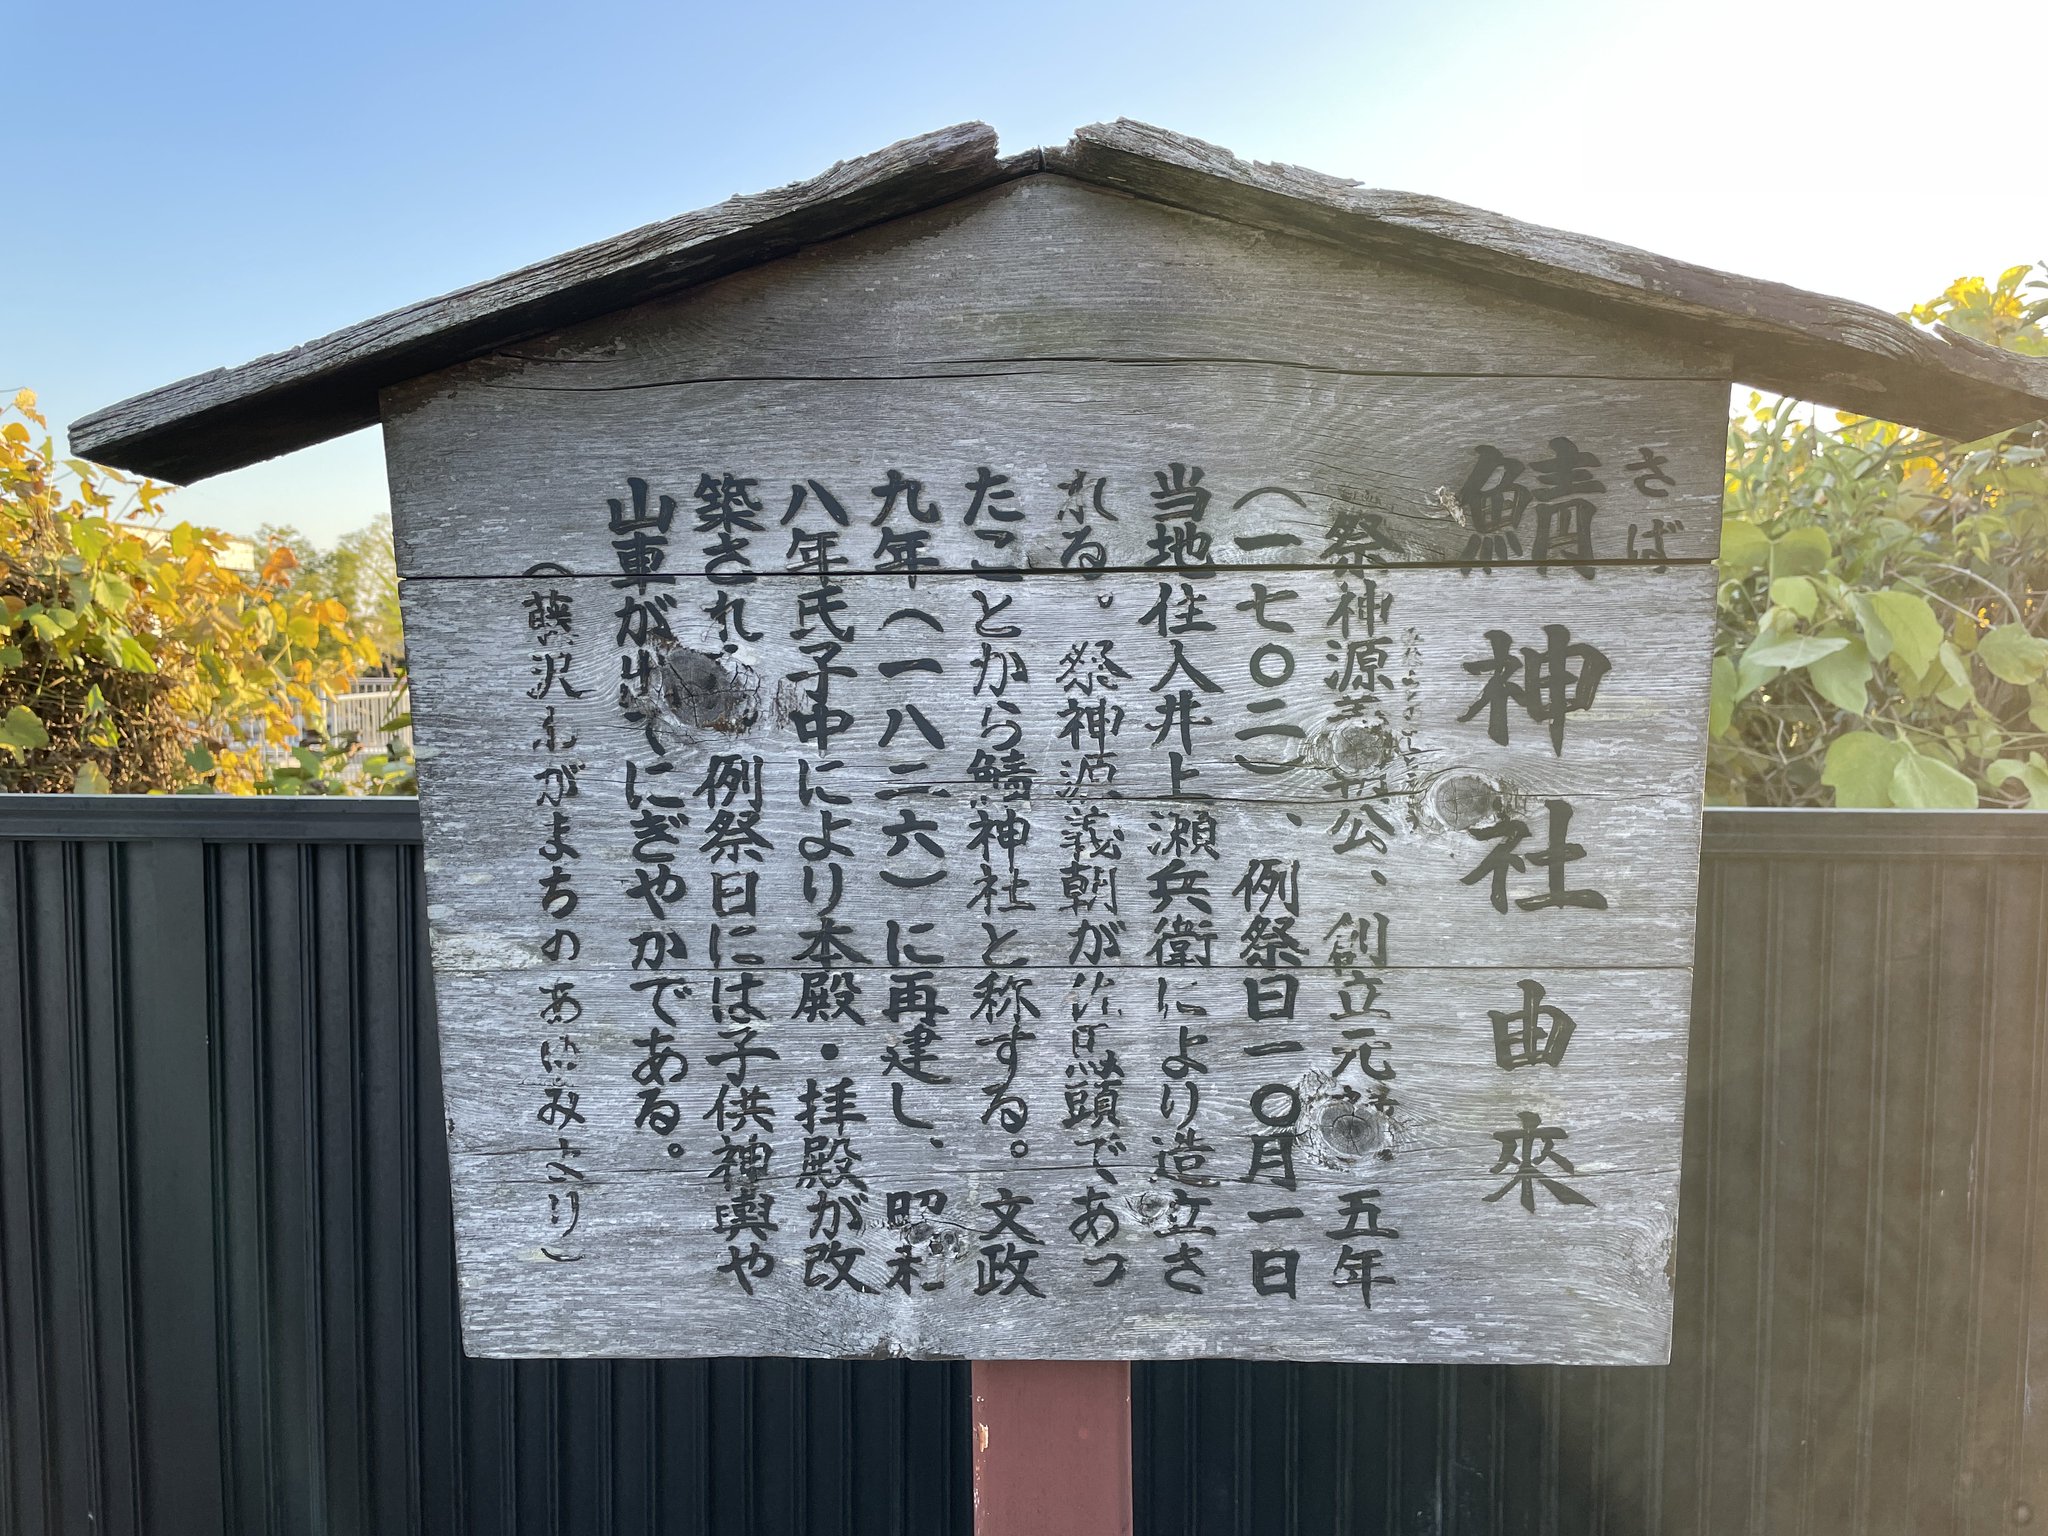 鯖神社由來
さば
祭神源義朝公、創立元禄一五年
（一七〇二）、例祭日一〇月一日
当地住人井上瀬兵衛により造立さ
れる。祭神源義朝が佐馬頭であっ
たことから鯖神社と称する。文政
九年（一八二六）に再建し、昭和
八年氏子中により本殿・拝殿が改
築され、例祭日には子供神輿や
山車が出てにぎやかである。
（藤沢わがまちのあゆみより）